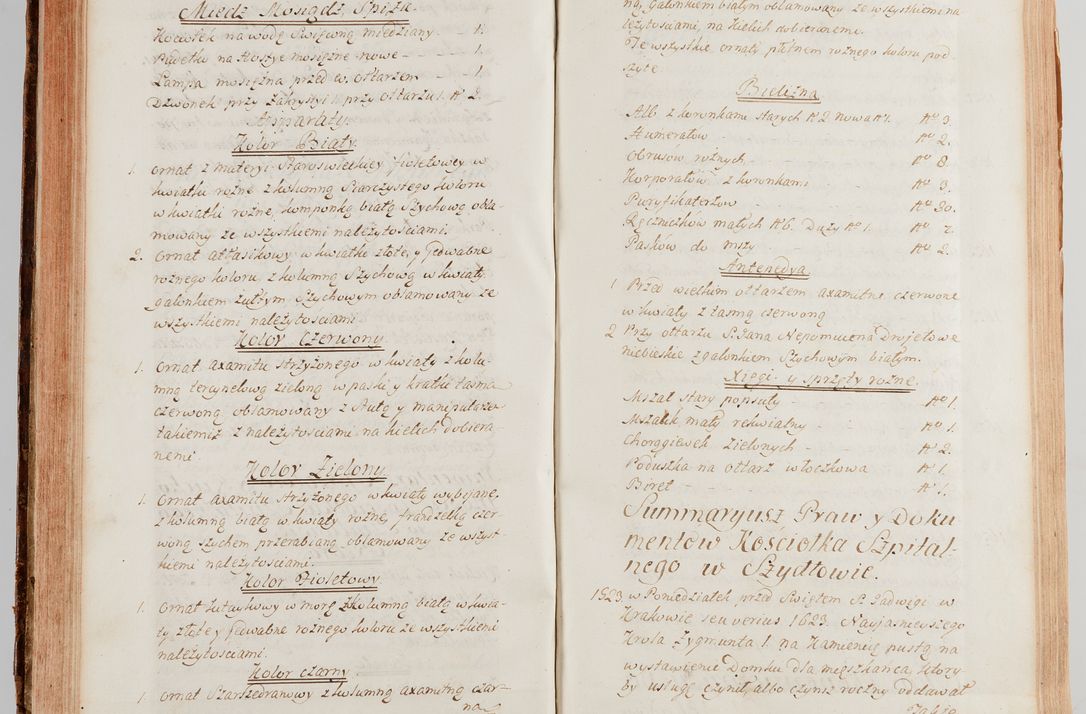 Miedz Mosiądz, Spiża.
Kociołek na wodę Swięconą miedziany. - 1.
Pudełko na Hostye mosiężne nowe - - - 1.
Lampa mosiężna przed w. ołtarzem - - 1.
Dzwonek przy Zakrystyi 1. przy ołtarzu 1. Nº 2.
Apparaty.
Kolor Biały.
1. Ornat z materyi Staroswieckiey fioletowey w
kwiatki rożne z kolumną Siarczystego koloru
w kwiatki rożne, komponką białą Szychową obła-
mowany ze wszystkiemi należytościami.
2. Ornat atłaskowy w kwiatki złote, y Jedwabne
rożnego koloru z kolumną Szychową w kwiaty
galonkiem żułtym Szychowym obłamowany ze
wszystkiemi należytościami.
Kolor Czerwony.
1. Ornat axamitu strzyżonego w kwiaty z kolu-
mną tercynelową zieloną w paski y kratki tasmą
czerwoną obłamowany z Stułą y manipularzem
takiemiż z należytościami na kielich dobiera-
nemi.
Kolor Zielony.
1. Ornat axamitu strzyżonego w kwiaty wybijane,
z kolumną białą w kwiaty rożne, frandzelką czer
woną szychem przerabianą obłamowany ze wszyst-
kiemi należytościami.
Kolor Fioletowy
1. Ornat kitaykowy w morę z kolumną białą w kwia-
ty złote y Jedwabne rożnego koloru ze wszystkiemi
należytościami.
Kolor czarny
1 Ornat Szarszedranowy z kolumną axamitną czar-
ną
ną, galonkiem białym obłamowany ze wszystkiemi na
leżytościami, na Kielich dobieronemi.
Te wszystkie ornaty płótnem rożnego koloru pod-
szyte
Bielizna
Alb z koronkami starych Nº 2. nowa Nº 1. Nº 3.
Humerałow - Nº 2.
Obrusow rożnych - Nº 8.
Korporałow z koronkami Nº 3.
Puryfikaterzow - Nº 30.
Ręczniczkòw małych Nº 6. Duży Nº 1. Nº 7.
Paskòw do mszy - Nº 2.
Antepedya
1 Przed wielkim ołtarzem axamitne czerwone
w kwiaty z tasmą czerwoną
2 Przy ołtarzu S. Jana Nepomucena Drojetowe
niebieskie z galonkiem Szychowym białym.
Xięgi y sprzęty rożne.
Mszał stary popsuty - Nº 1.
Mszałek mały rekwialny - Nº 1.
Chorągiewek zielonych - Nº 2.
Poduszka na ołtarz włoczkowa Nº 1.
Biret - Nº 1.
Summaryusz Praw y Doku
mentòw Kosciòłka Szpital-
nego w Szydłowie.
1523. w Poniedziałek przed Swiętem S. Jadwigi w
Krakowie seu verius 1623. Nayjasnieyszego
Krola Zygmunta I. na Kamienicę pustą na
wystawienie Domku dla mieszkańca, ktory
by usługę czynił, albo czynsz roczny oddawał